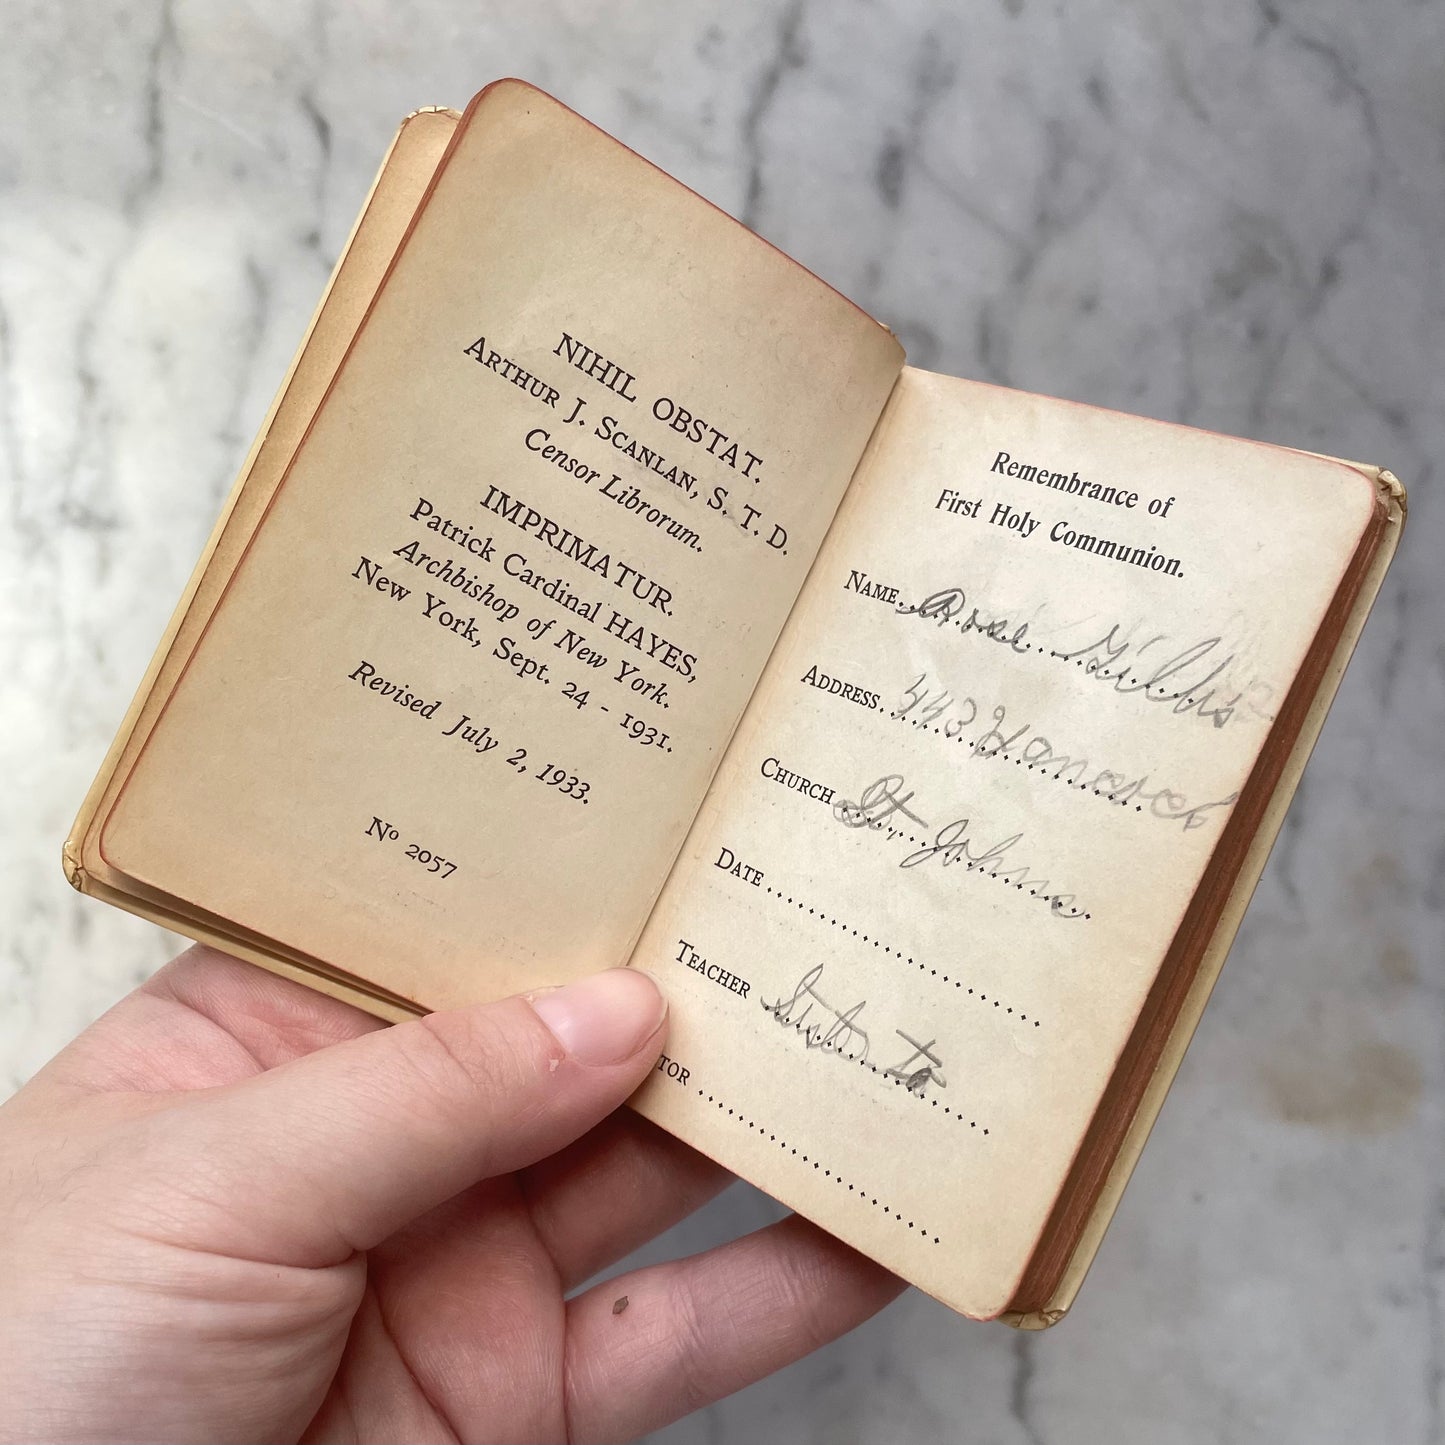 NIHIL OBSTAT.
ARTHUR J. SCANLAN, S. T. D.
Censor Librorum.
IMPRIMATUR.
Patrick Cardinal HAYES,
Archbishop of New York.
New York, Sept. 24 - 1931.
Revised July 2, 1933.
Nº 2057
Remembrance of
First Holy Communion.
NAME Rose
ADDRESS 443 Hancock
CHURCH St. Johns
DATE
TEACHER Sister
TOR